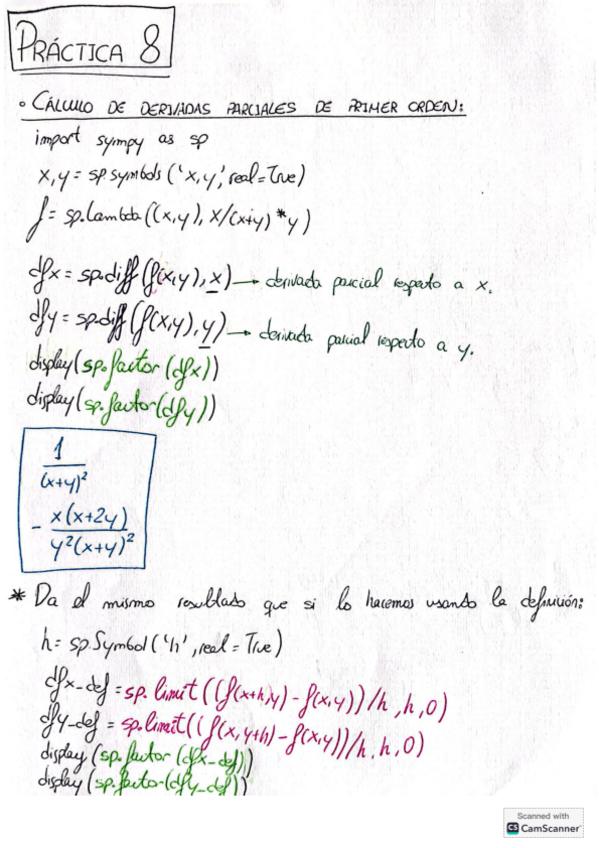 PRÁCTICA 8
∘ CÁLCULO DE DERIVADAS PARCIALES DE PRIMER ORDEN:
import sympy as sp
x,y = sp.symbols('x,y', real=True)
f = sp.Lambda((x,y), x/(x+y)*y)
dfx = sp.diff(f(x,y),x) → derivada parcial respecto a x.
dfy = sp.diff(f(x,y),y) → derivada parcial respecto a y.
display(sp.factor(dfx))
display(sp.factor(dfy))
1/(x+y)²
- x(x+2y)/y²(x+y)²
* Da el mismo resultado que si lo hacemos usando la definición:
h= sp.Symbol('h', real=True)
dfx_def = sp.limit((f(x+h,y)-f(x,y))/h,h,0)
dfy_def = sp.limit((f(x,y+h)-f(x,y))/h,h,0)
display(sp.factor(dfx_def))
display(sp.factor(dfy_def))
Scanned with
CS CamScanner